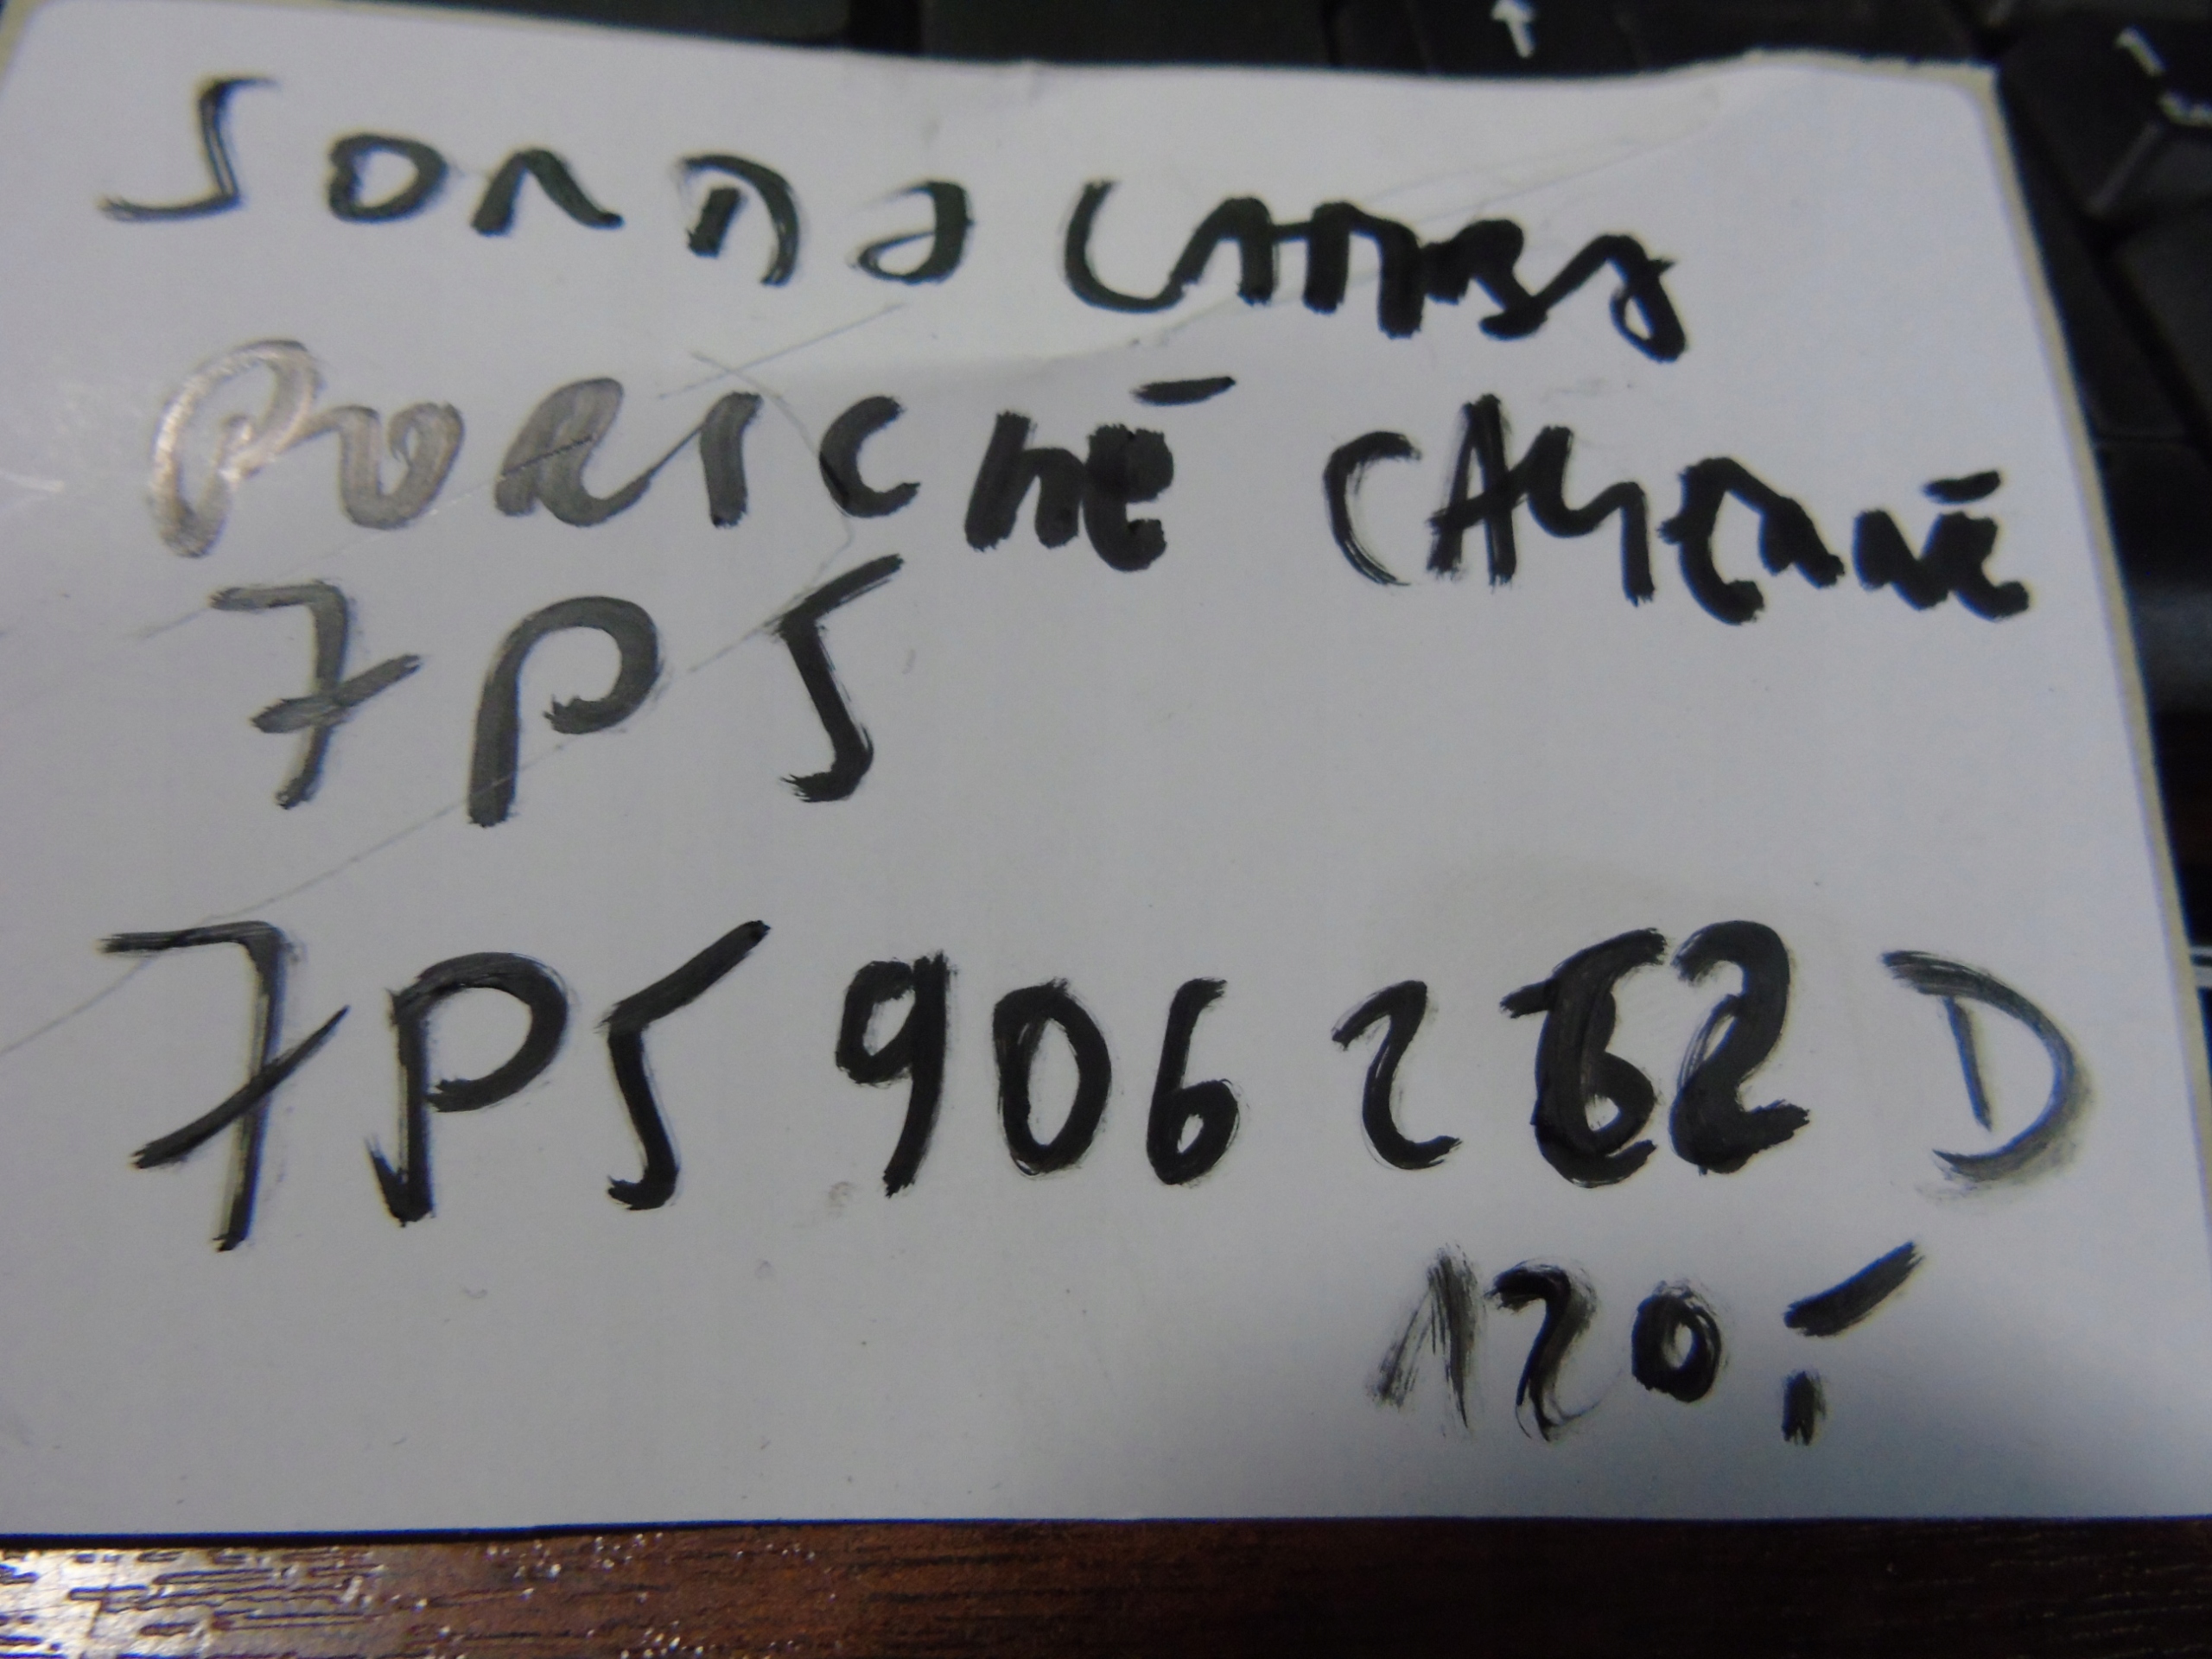 SONDA LAMBDA
PORSCHE CAYENNE
7P5
7P5 906 262 D
120,-